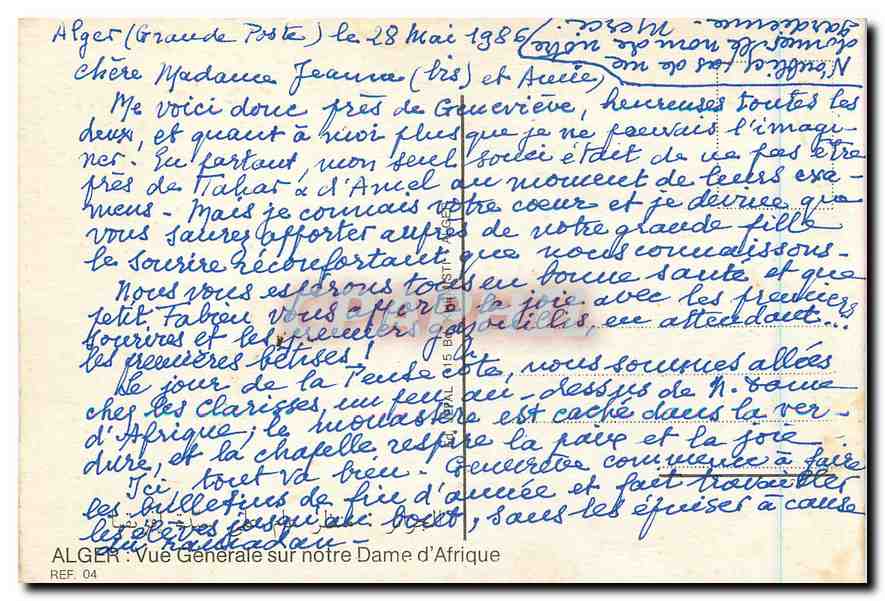 Alger (Grande Poste) le 28 Mai 1986
N'oubliez pas de me
donner le nom de votre
gardienne. Merci.
chère Madame Jeanne (bis) et Amie,
Me voici donc près de Geneviève, heureuses toutes les
deux, et quant à moi plus que je ne pouvais l'imagi-
ner. En partant, mon seul souci était de ne pas être
près de Tahar & d'Amel au moment de leurs exa-
mens - Mais je connais votre coeur et je devine que
vous saurez apporter auprès de notre grande fille
le sourire réconfortant que nous connaissons.
Nous vous espérons tous en bonne santé et que
petit Fabien vous apporte la joie avec les premiers
sourires et les premiers gazouillis, en attendant...
les premières bêtises !
Le jour de la Pentecôte, nous sommes allées
chez les Clarisses, un peu au-dessus de N. Dame
d'Afrique, le monastère est caché dans la ver-
dure, et la chapelle respire la paix et la joie.
Ici, tout va bien - Geneviève commence à faire
les bulletins de fin d'année et fait travailler
les élèves jusqu'au bout, sans les épuiser à cause
du ramadan -
ALGER : Vue Générale sur notre Dame d'Afrique
REF. 04